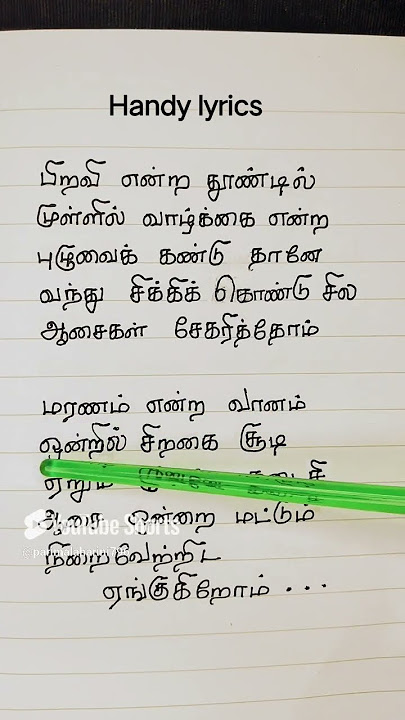 Handy lyrics
பிறவி என்ற தூண்டில்
முள்ளில் வாழ்க்கை என்ற
புழுவைக் கண்டு தானே
வந்து சிக்கிக் கொண்டு சில
ஆசைகள் சேகரித்தோம்
மரணம் என்ற வானம்
ஒன்றில் சிறகை சூடி
ஏறும்
YouTube Shorts
ஆசை ஒன்றை மட்டும்
நிறைவேற்றிட
ஏங்குகிறோம் ...